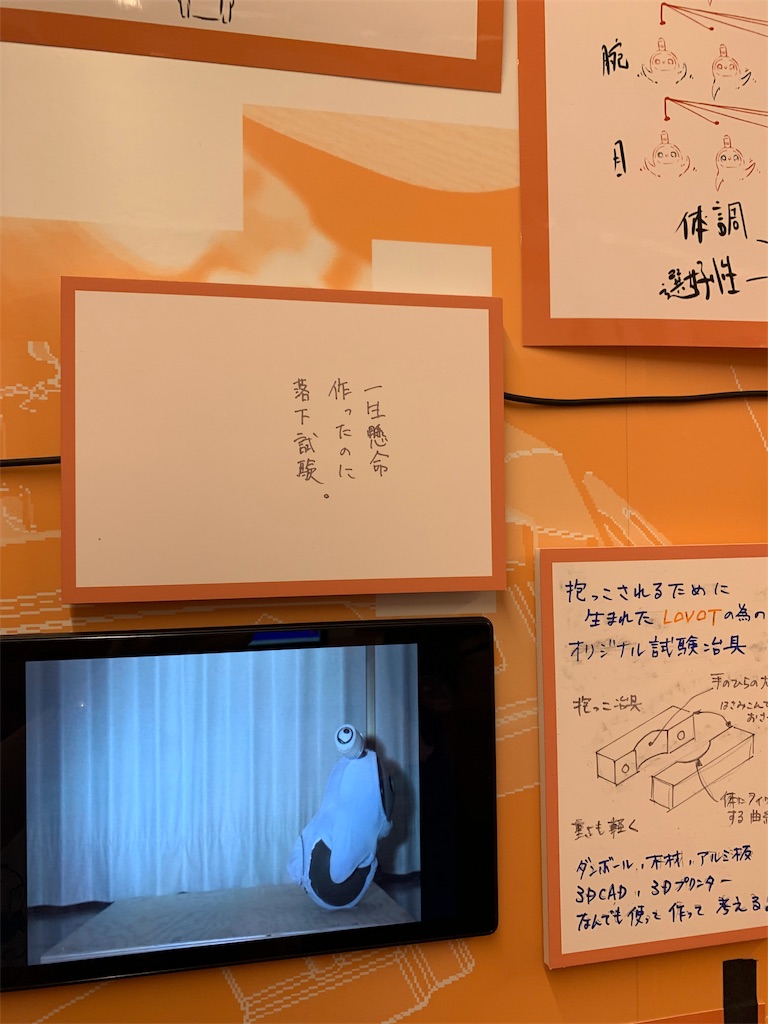 腕
目
体調
選好性
一生懸命
作ったのに
落下試験。
抱っこされるために
生まれたLOVOTの為の
オリジナル試験冶具
抱っこ冶具
手のひらの大
はさみこんで
おさ
体にフィッ
する曲
重さも軽く
ダンボール、木材、アルミ板
3DCAD、3Dプリンター
なんでも使って作って考える